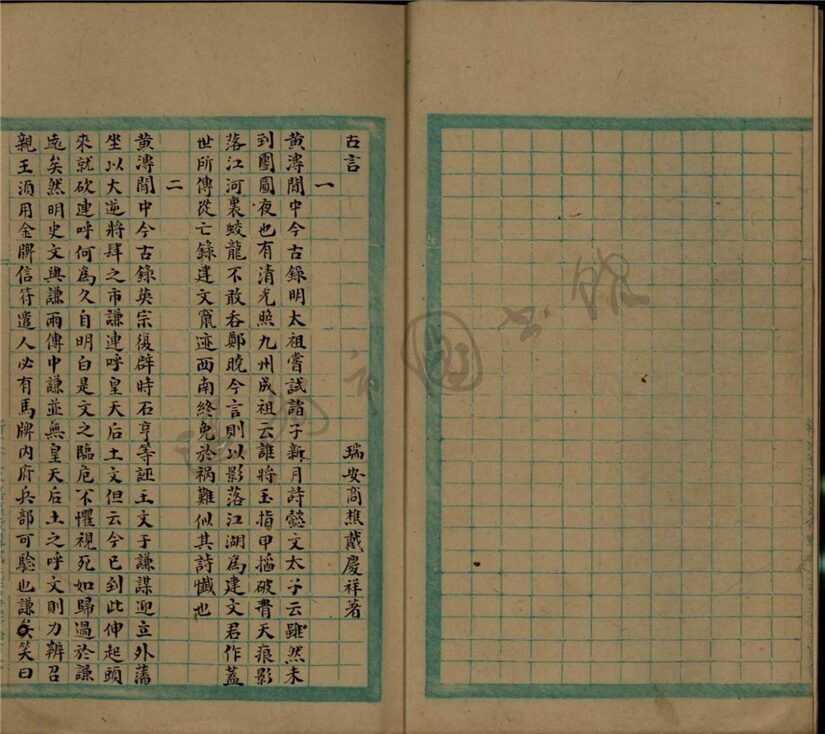 古言
瑞安商樵戴慶祥著
一
黃溥閒中今古錄明太祖嘗試諸子新月詩懿文太子云雖然未
到團圓夜也有清光照九州成祖云誰將玉指甲搯破青天痕影
落江河裏蛟龍不敢吞鄭曉今言則以影落江湖為建文君作蓋
世所傳從亡錄建文竄迹西南終免於禍難似其詩懺也
二
黃溥閒中今古錄英宗復辟時石亨等誣王文于謙謀迎立外藩
坐以大逆將肆之市謙連呼皇天后土文但云今已到此伸起頭
來就砍連呼何為久自明白是文之臨危不懼視死如歸過於謙
遠矣然明史文與謙兩傳中謙並無皇天后土之呼文則力辨召
親王須用金牌信符遣人必有馬牌內府兵部可驗也謙笑曰
圖書館